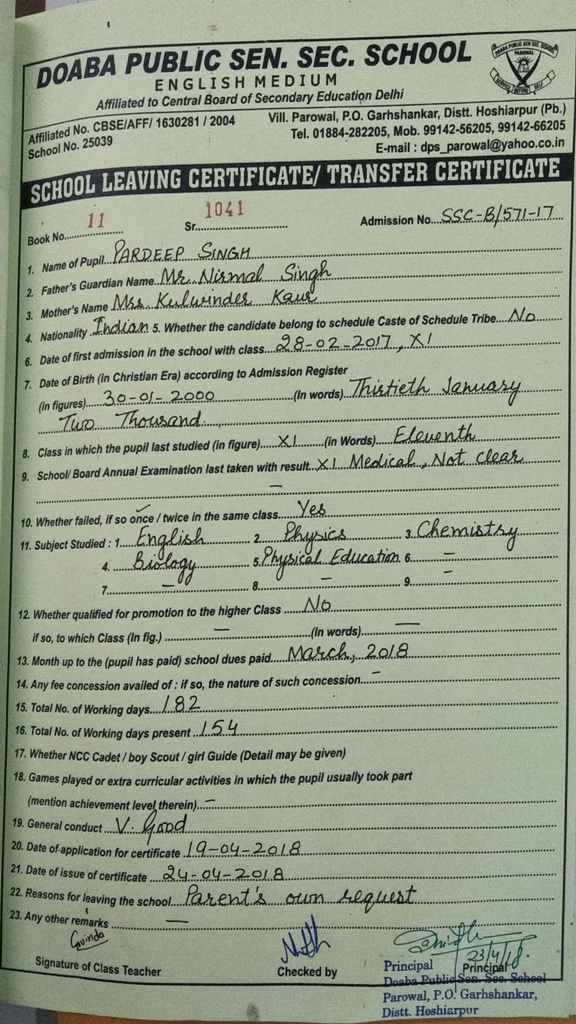 DOABA PUBLIC SEN. SEC. SCHOOL
ENGLISH MEDIUM
Affiliated to Central Board of Secondary Education Delhi
Affiliated No. CBSE/AFF/ 1630281 / 2004
School No. 25039
Vill. Parowal, P.O. Garhshankar, Distt. Hoshiarpur (Pb.)
Tel. 01884-282205, Mob. 99142-56205, 99142-66205
E-mail : dps_parowal@yahoo.co.in
SCHOOL LEAVING CERTIFICATE/ TRANSFER CERTIFICATE
Book No. 11 Sr. 1041 Admission No. SSC-B/571-17
1. Name of Pupil PARDEEP SINGH
2. Father's Guardian Name Mr. Nirmal Singh
3. Mother's Name Mrs. Kulwinder Kaur
4. Nationality Indian 5. Whether the candidate belong to schedule Caste of Schedule Tribe No
6. Date of first admission in the school with class 28-02-2017, XI
7. Date of Birth (in Christian Era) according to Admission Register
(in figures) 30-01-2000 (In words) Thirtieth January
Two Thousand.
8. Class in which the pupil last studied (in figure) XI (in Words) Eleventh
9. School/ Board Annual Examination last taken with result XI Medical, Not clear
—
10. Whether failed, if so once / twice in the same class Yes
11. Subject Studied : 1. English 2. Physics 3. Chemistry
4. Biology 5. Physical Education 6. —
7. — 8. — 9. —
12. Whether qualified for promotion to the higher Class No
if so, to which Class (In fig.) — (In words) —
13. Month up to the (pupil has paid) school dues paid March, 2018
14. Any fee concession availed of : if so, the nature of such concession —
15. Total No. of Working days 182
16. Total No. of Working days present 154
17. Whether NCC Cadet / boy Scout / girl Guide (Detail may be given)
18. Games played or extra curricular activities in which the pupil usually took part
(mention achievement level therein) —
19. General conduct V. Good
20. Date of application for certificate 19-04-2018
21. Date of issue of certificate 24-04-2018
22. Reasons for leaving the school Parent's own request
23. Any other remarks —
Govinda
23/4/18
Signature of Class Teacher Checked by Principal
Principal
Doaba Public Sen. Sec. School
Parowal, P.O. Garhshankar,
Distt. Hoshiarpur